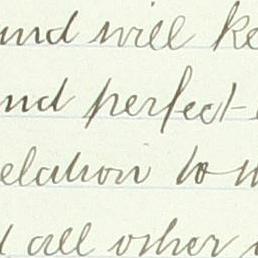 und will ke
nd perfect
elation to
all other